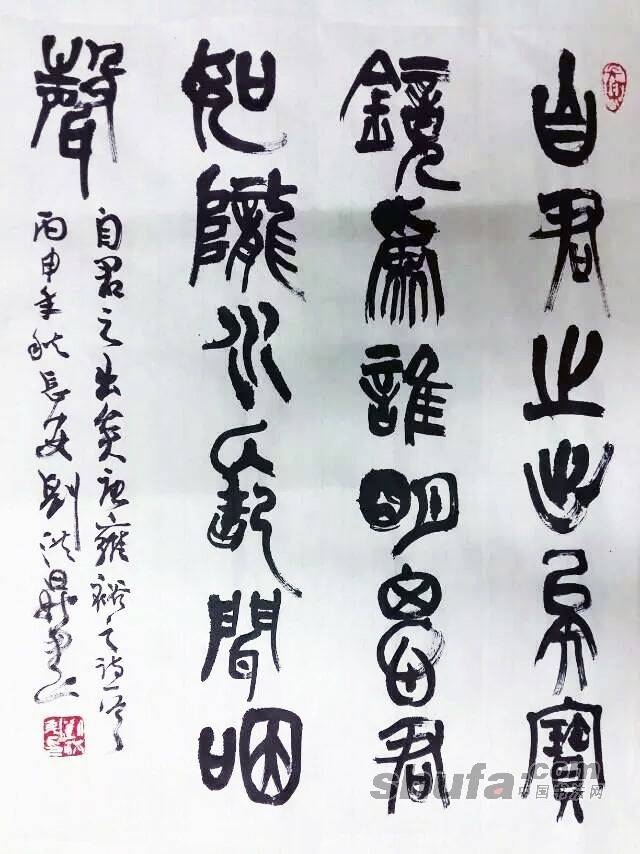 自君之出矣寶
鏡為誰明思君
如隴水聞咽
聲
自君之出矣唐雍裕之詩一首
丙申年秋長安劉洪
shufa.com
中国书法网